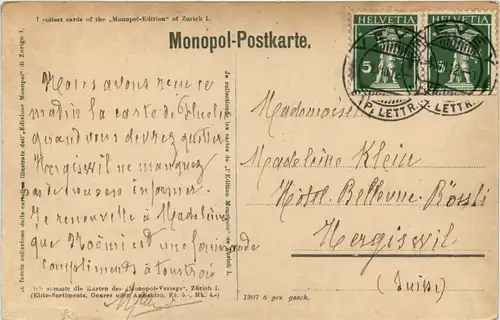 I collect cards of the „Monopol-Edition" of Zurich I.
Monopol-Postkarte.
HELVETIA
5
HELVETIA
5
LETTR.
LETTR.
Io faccio collezione delle cartoline illustrate dell'„Edizione Monopol" di Zurigo I.
Je collectionne les cartes de l'„Edition Monopole" de Zurich I.
Nous avons reçu ce
matin la carte de
quand vous devrez quitter
Hergiswil ne manquez
pas de nous en informer.
Je renouvelle à Madeleine
que Noémi est une
compliments à tous trois
Mademoiselle
Madeleine Klein
Hôtel Bellevue-Rössli
Hergiswil
(Suisse)
Ich sammle die Karten des „Monopol-Verlags", Zürich I.
(Elite-Sortiments, Genres oder Ansichten, Fr. 5.-, Mk. 4.-)
1907 ges gesch.